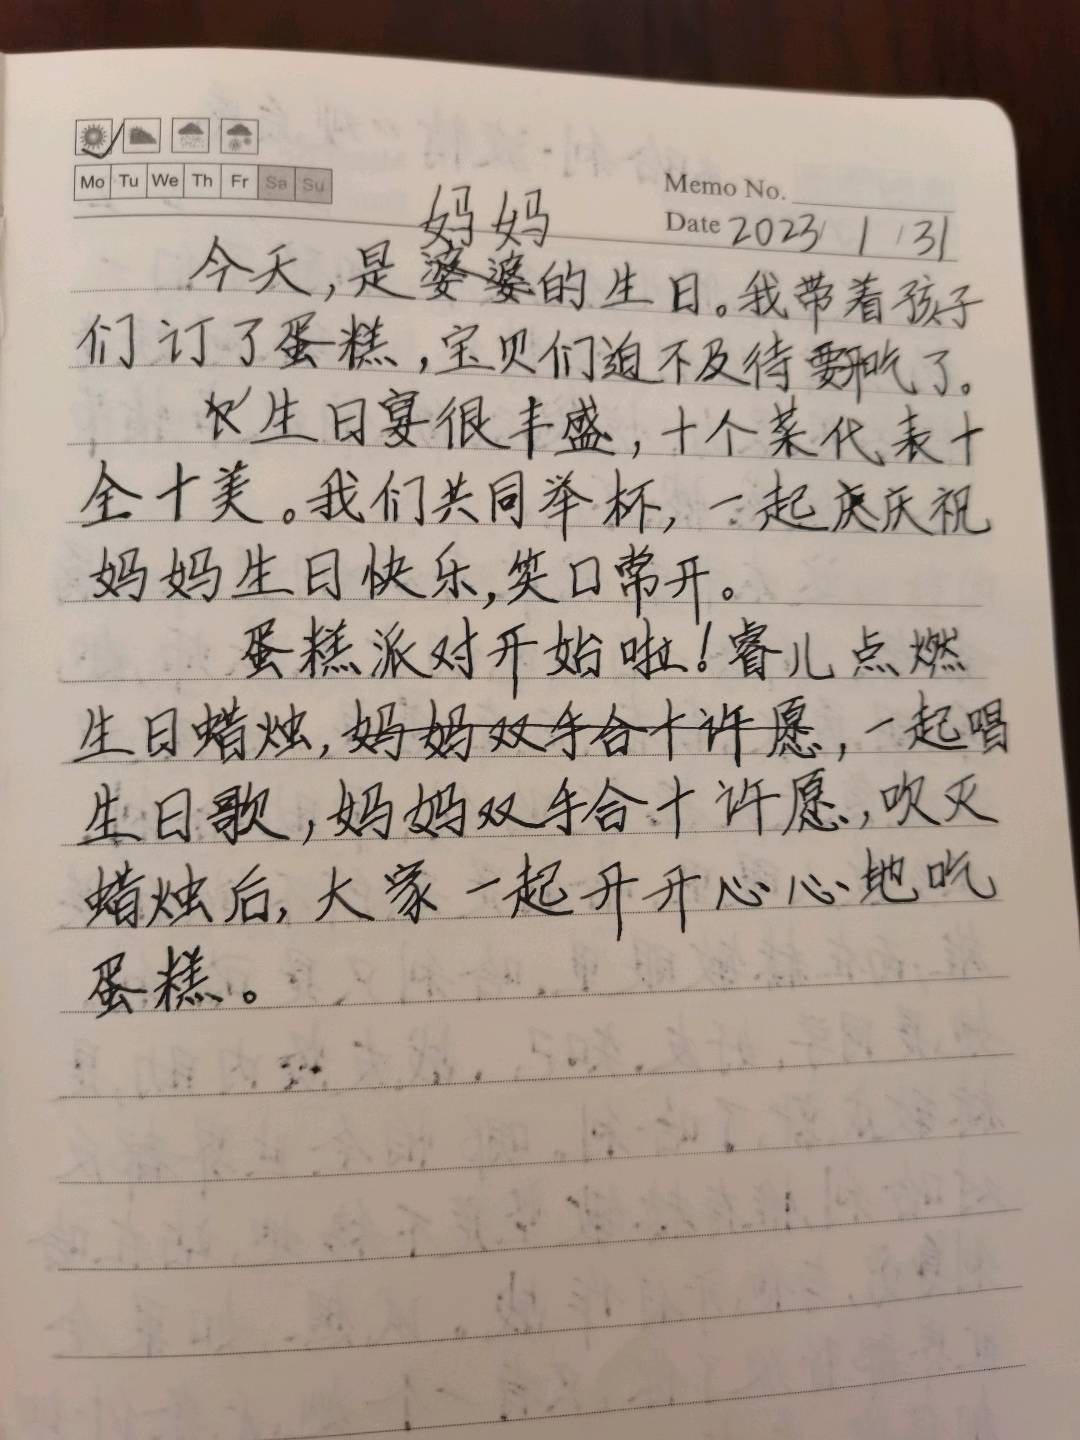 Mo Tu We Th Fr Sa Su
Memo No.
Date 2023 1 31
妈妈
今天,是婆婆的生日。我带着孩子
们订了蛋糕,宝贝们迫不及待要开吃了。
生日宴很丰盛,十个菜代表十
全十美。我们共同举杯,一起庆庆祝
妈妈生日快乐,笑口常开。
蛋糕派对开始啦!睿儿点燃
生日蜡烛,妈妈双手合十许愿,一起唱
生日歌,妈妈双手合十许愿,吹灭
蜡烛后,大家一起开开心心地吃
蛋糕。